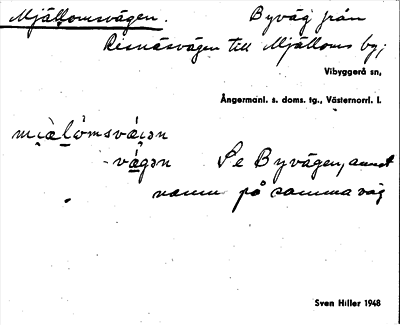 Mjällomsvägen. Byväg från
Risnäsvägen till Mjälloms by;
Vibyggerå sn,
Ångermanl. s. doms. tg., Västernorrl. l.
vägen Se Byvägen, annat
namn på samma väg
Sven Hiller 1948